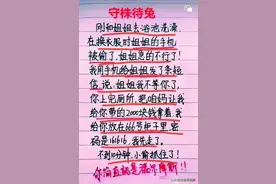 守株待兔
刚和姐姐去浴池洗澡，
在换衣服时姐姐的手机
被偷了，姐姐急的不行了！
我用手机给姐姐发了条短
信，说，姐我不等你了，
你上完厕所，把咱妈让我
给你带的2000块钱拿着，我
给你放在666号柜子里，密
码是161616，我先走了。
不到10分钟，小偷抓住了！
你简直就是